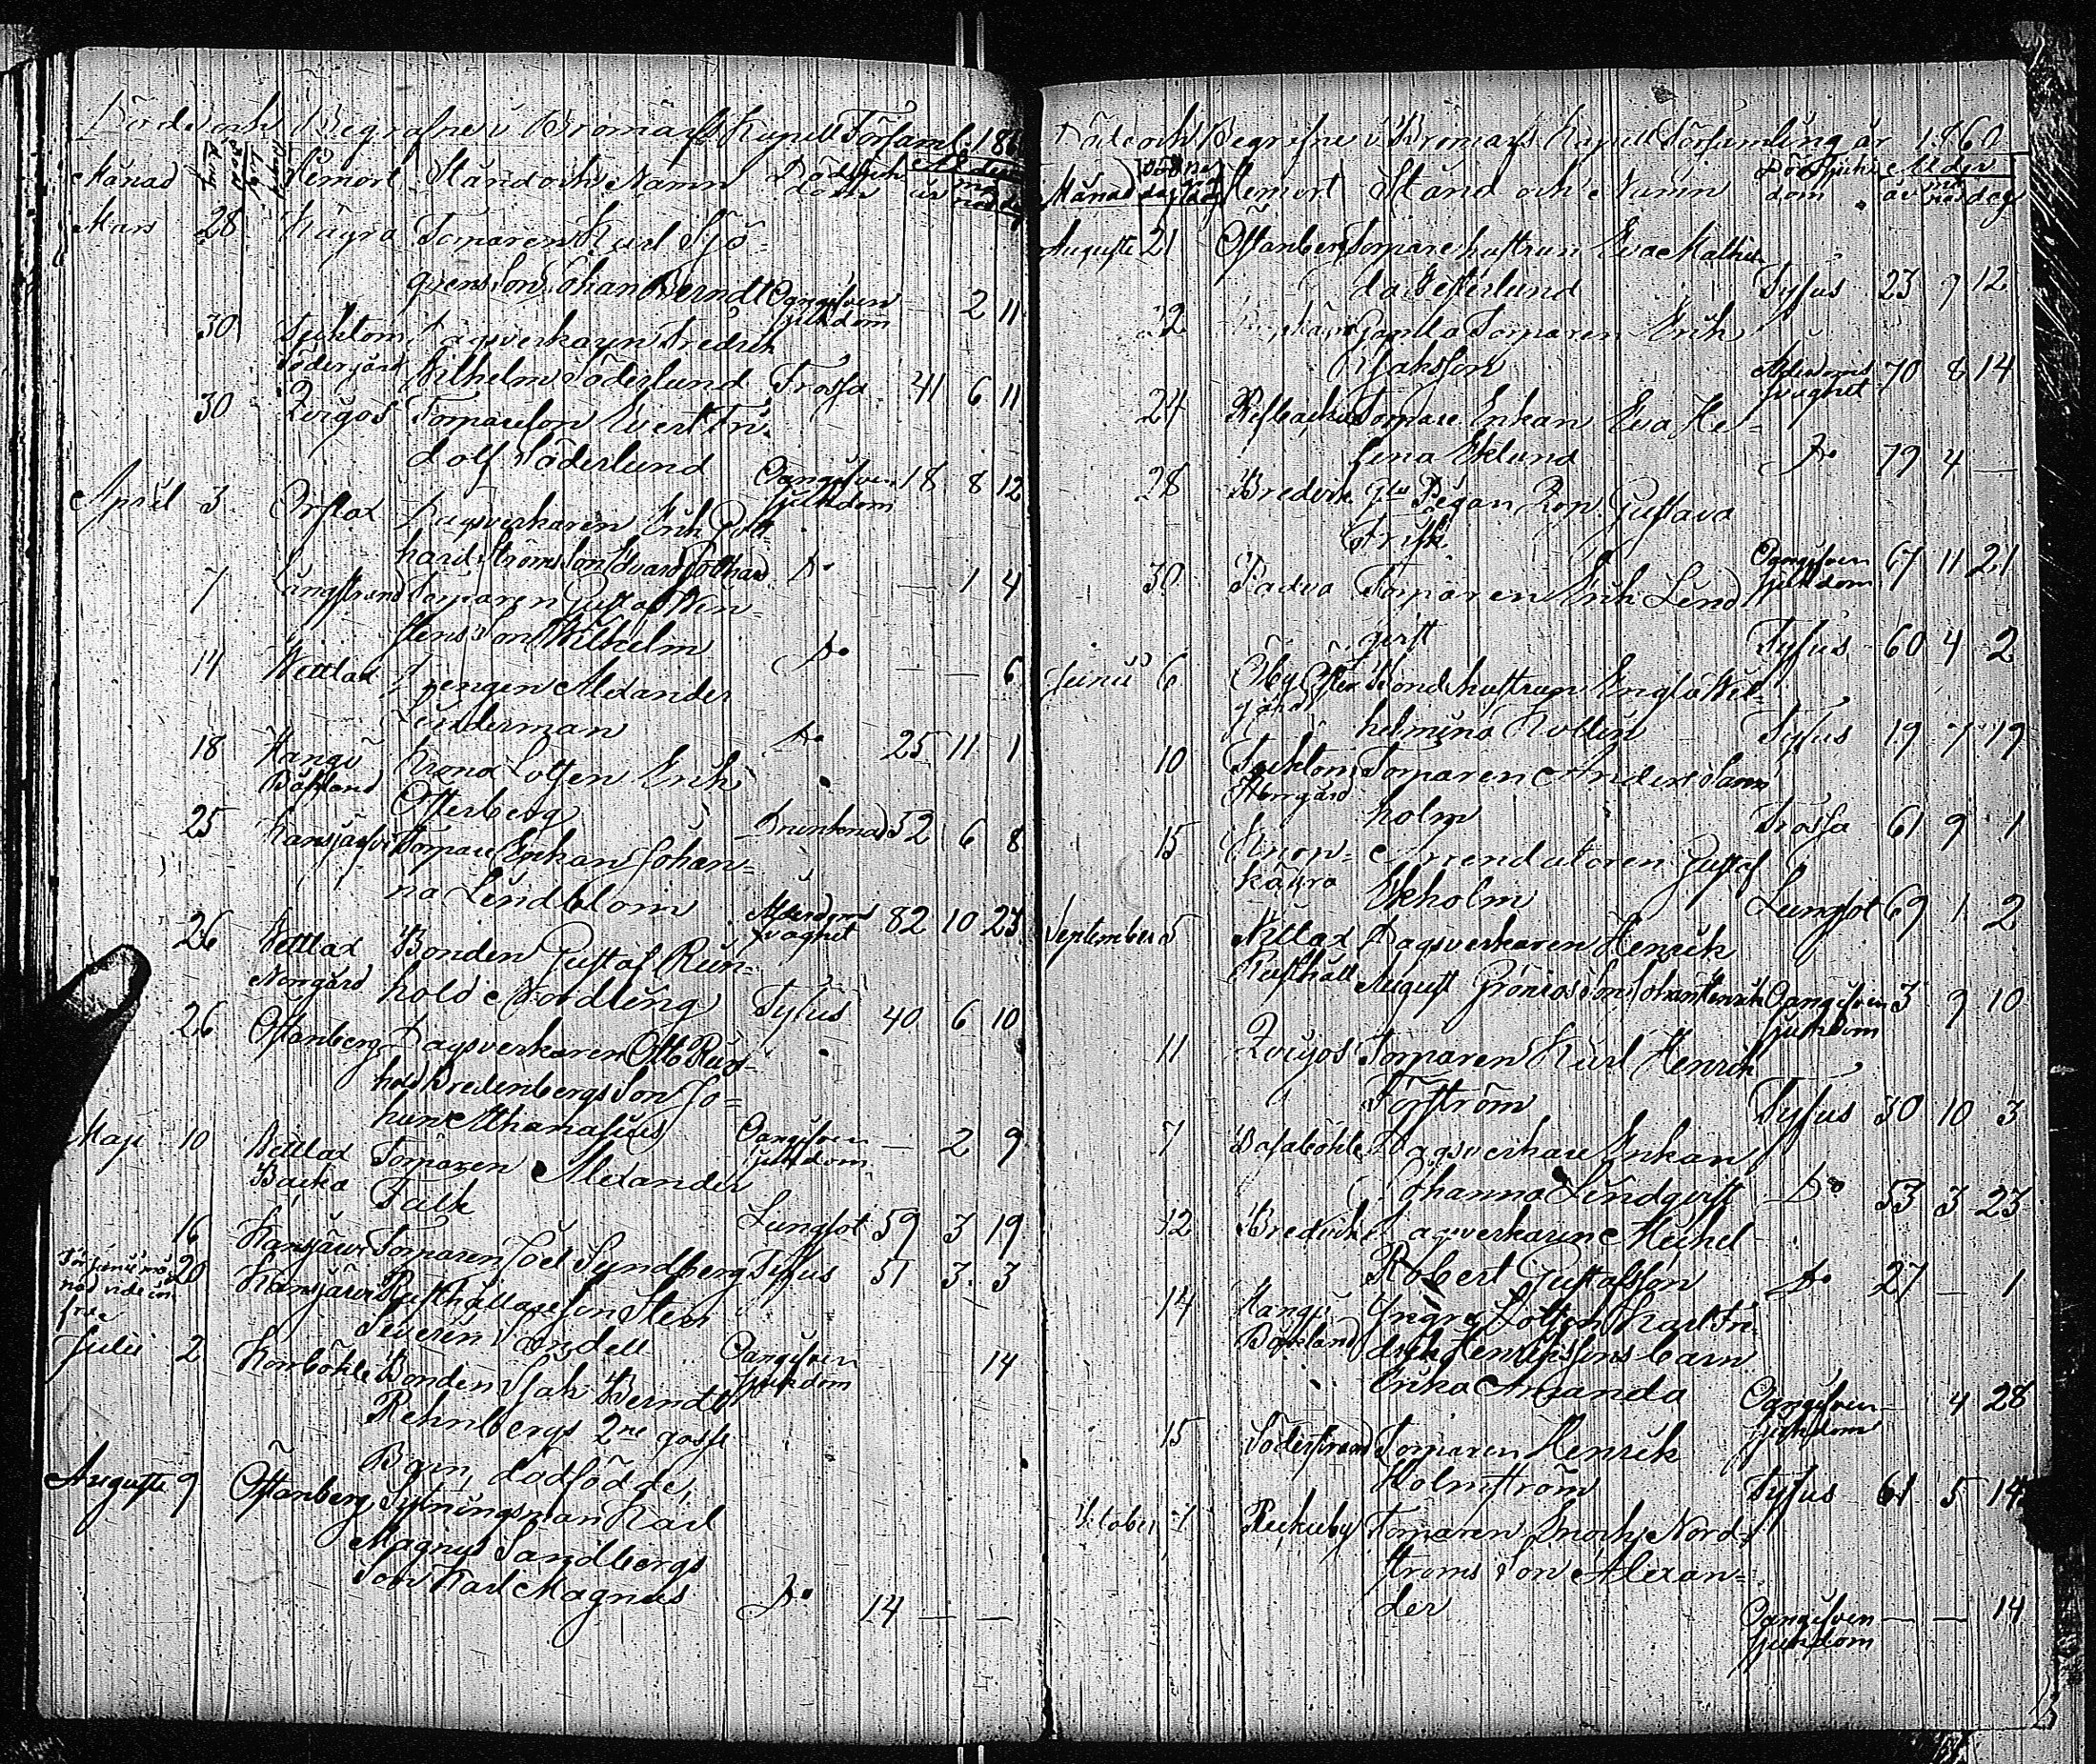 Döde och Begrafne i Bromarfs Kapell Församl. 186
Månad Hemort Stånd och Namn Dödssjukdom Ålder år månad dag
Mars 28 Kägra Torparen Karl Sjö-
grens Son Johan Berndt Oangifven sjukdom 2 11
30 Tecktom Dagsverkaren Fredrik
Södergård Wilhelm Söderlund Frossa 41 6 11
30 Zvigos Torpareson Evert Fri-
dolf Söderlund Oangifven sjukdom 18 8 12
April 3 Orslax Dagsverkaren Erik Gott-
hard Ströms Son Edvard Gotthard Do — 1 4
7 Långstrand Torparen Gustaf Wen-
stens Son Wilhelm Do — — 6
14 Wettlax Drengen Alexander
Linderman Do 25 11 1
18 Hangö Krono Lotsen Erik
Båkland Österberg Drunknad 52 6 8
25 Kansjärvi Torpare Enkan Johan-
na Lindblom Ålderdoms svaghet 82 10 23
26 Wettlax Bonden Gustaf Rein-
Norrgård hold Nordling Tyfus 40 6 10
26 Östanberg Dagsverkaren Otto Rein-
hold Bredenbergs Son Jo-
han Athanasius Oangifven sjukdom — 2 9
Maji 10 Wettlax Torparen Alexander
Backa Falk Lungsot 59 3 19
16 Kansjärvi Torparen Joel Sundberg Tyfus 51 3 3
För Junii må- 20 Kansjärvi Rusthållareson Sten
nad vide in-
fra Severin Oangifven sjukdom 14
Julii 2 Korsböhle Bonden Isak Berndt
Rehnbergs 2ne gosse
Barn, dödfödde,
Augusti 9 Östanberg Sytningsman Karl
Magnus Sandbergs
Son Karl Magnus Do 14 — —
Döde och Begrafne i Bromarfs Kapell Församling år 1860
Månad Hemort Stånd och Namn Dödssjukdom Ålder år månad dag
Augusti 21 Östanberg Torpare hustrun Eva Mathil-
da Westerlund Tyfus 23 9 12
22 Gamla Torparen Erik
Isaksson Ålderdoms svaghet 70 8 14
24 Refbacka Torpare Enkan Eva He-
lena Eklund Do 79 4 —
28 Bredvik Gla Pigan Gustava
Frisk Oangifven sjukdom 67 11 21
30 Padva Torparen Erik Lind
qvist Tyfus 60 4 2
Junii 6 Öby Öster Bondehustrun Engla Wil-
gård helmina Tyfus 19 7 19
10 Tecktom Torparen Anders Sann
Herrgård holm Frossa 61 9 1
15 Knop- Arrendatoren Gustaf
kägra Ekholm Lungsot 69 1 2
September 5 Wettlax Dagsverkaren Henrik
Rusthåll August Grönroos Son Johan Henrik Oangifven sjukdom 3 9 10
11 Zvigos Torparen Karl Henrik
Forström Tyfus 30 10 3
7 Basaböhle Dagsverkare Enkan
Johanna Lindqvist Do 53 3 23
12 Bredvik Dagsverkaren Michel
Robert Gustafsson Do 27 — 1
14 Hangö Yngre Lotsen Karl Fre-
Båkland drik Henrikssons barn
Erika Amanda Oangifven sjukdom — 4 28
15 Söderstrand Torparen Henrik
Holmström Tyfus 61 5 14
October 1 Rickeby Torparen Enoch Nord-
ströms Son Alexan-
der Oangifven sjukdom — — 14